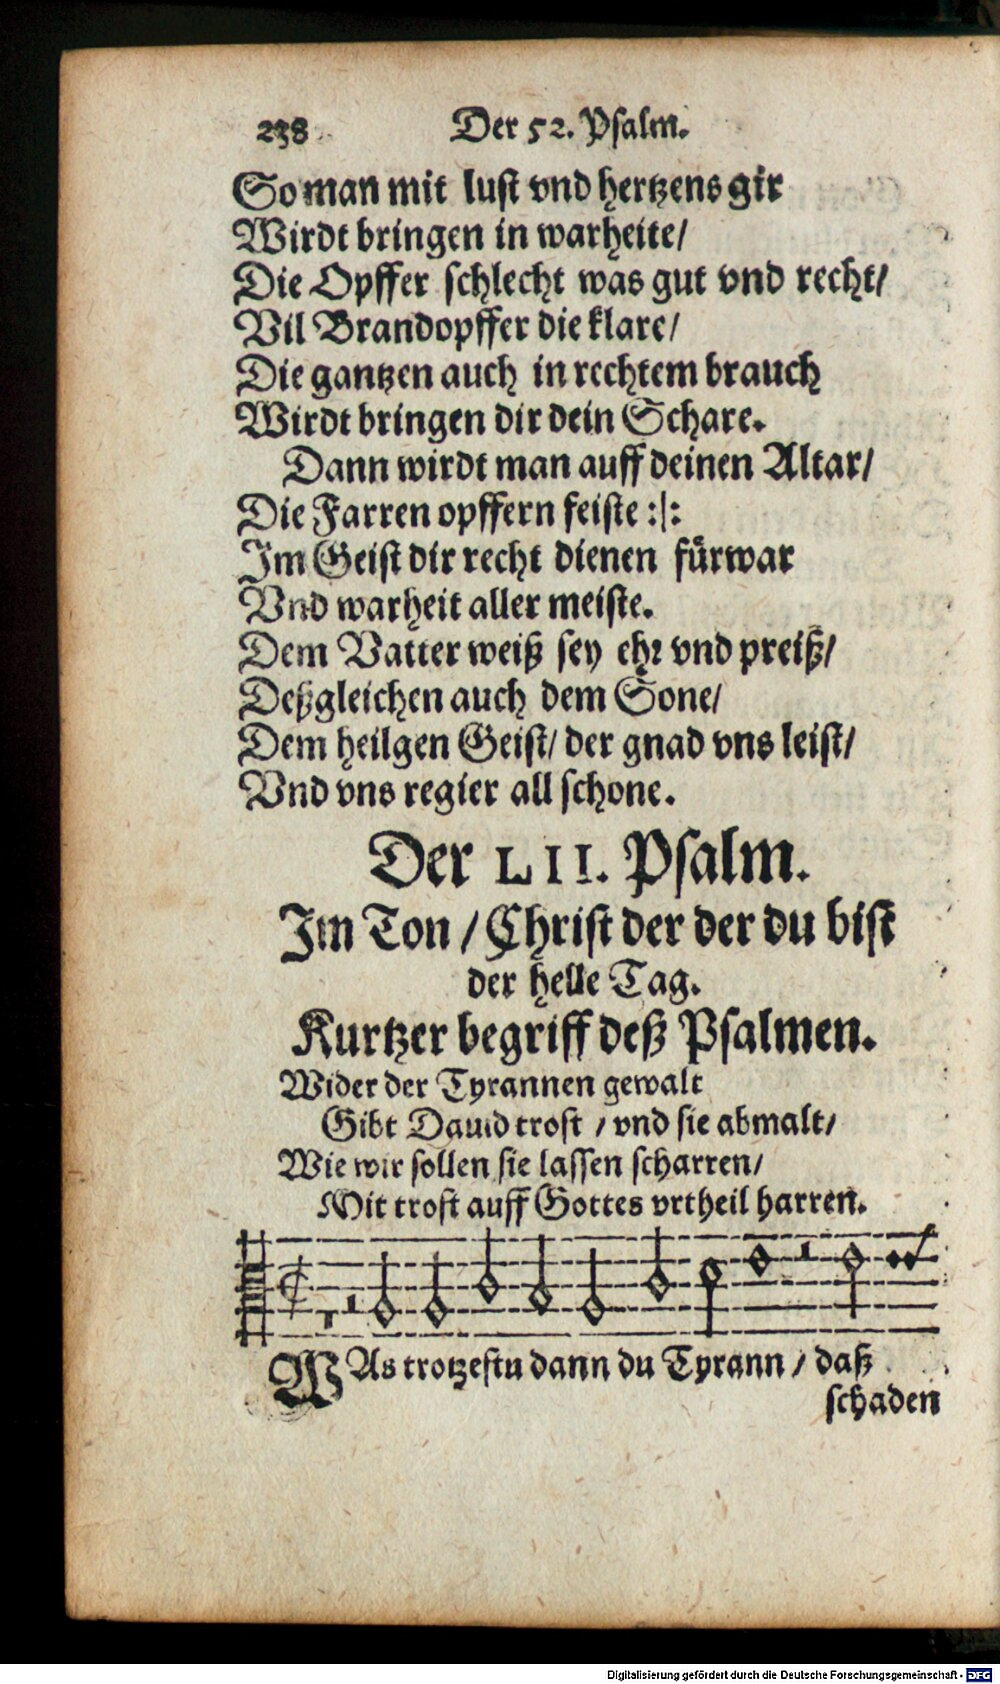 238 Der 52. Psalm.
So man mit lust vnd hertzens gir
Wirdt bringen in warheite/
Die Opffer schlecht was gut vnd recht/
Vil Brandopffer die klare/
Die gantzen auch in rechtem brauch
Wirdt bringen dir dein Schare.
Dann wirdt man auff deinen Altar/
Die Farren opffern feiste :|:
Im Geist dir recht dienen fürwar
Vnd warheit aller meiste.
Dem Vatter weiß sey ehr vnd preiß/
Deßgleichen auch dem Sone/
Dem heilgen Geist/ der gnad vns leist/
Vnd vns regier all schone.
Der LII. Psalm.
Im Ton / Christ der der du bist
der helle Tag.
Kurtzer begriff deß Psalmen.
Wider der Tyrannen gewalt
Gibt Dauid trost / vnd sie abmalt/
Wie wir sollen sie lassen scharren/
Mit trost auff Gottes vrtheil harren.
WAs trotzestu dann du Tyrann / daß
schaden
Digitalisierung gefördert durch die Deutsche Forschungsgemeinschaft - DFG